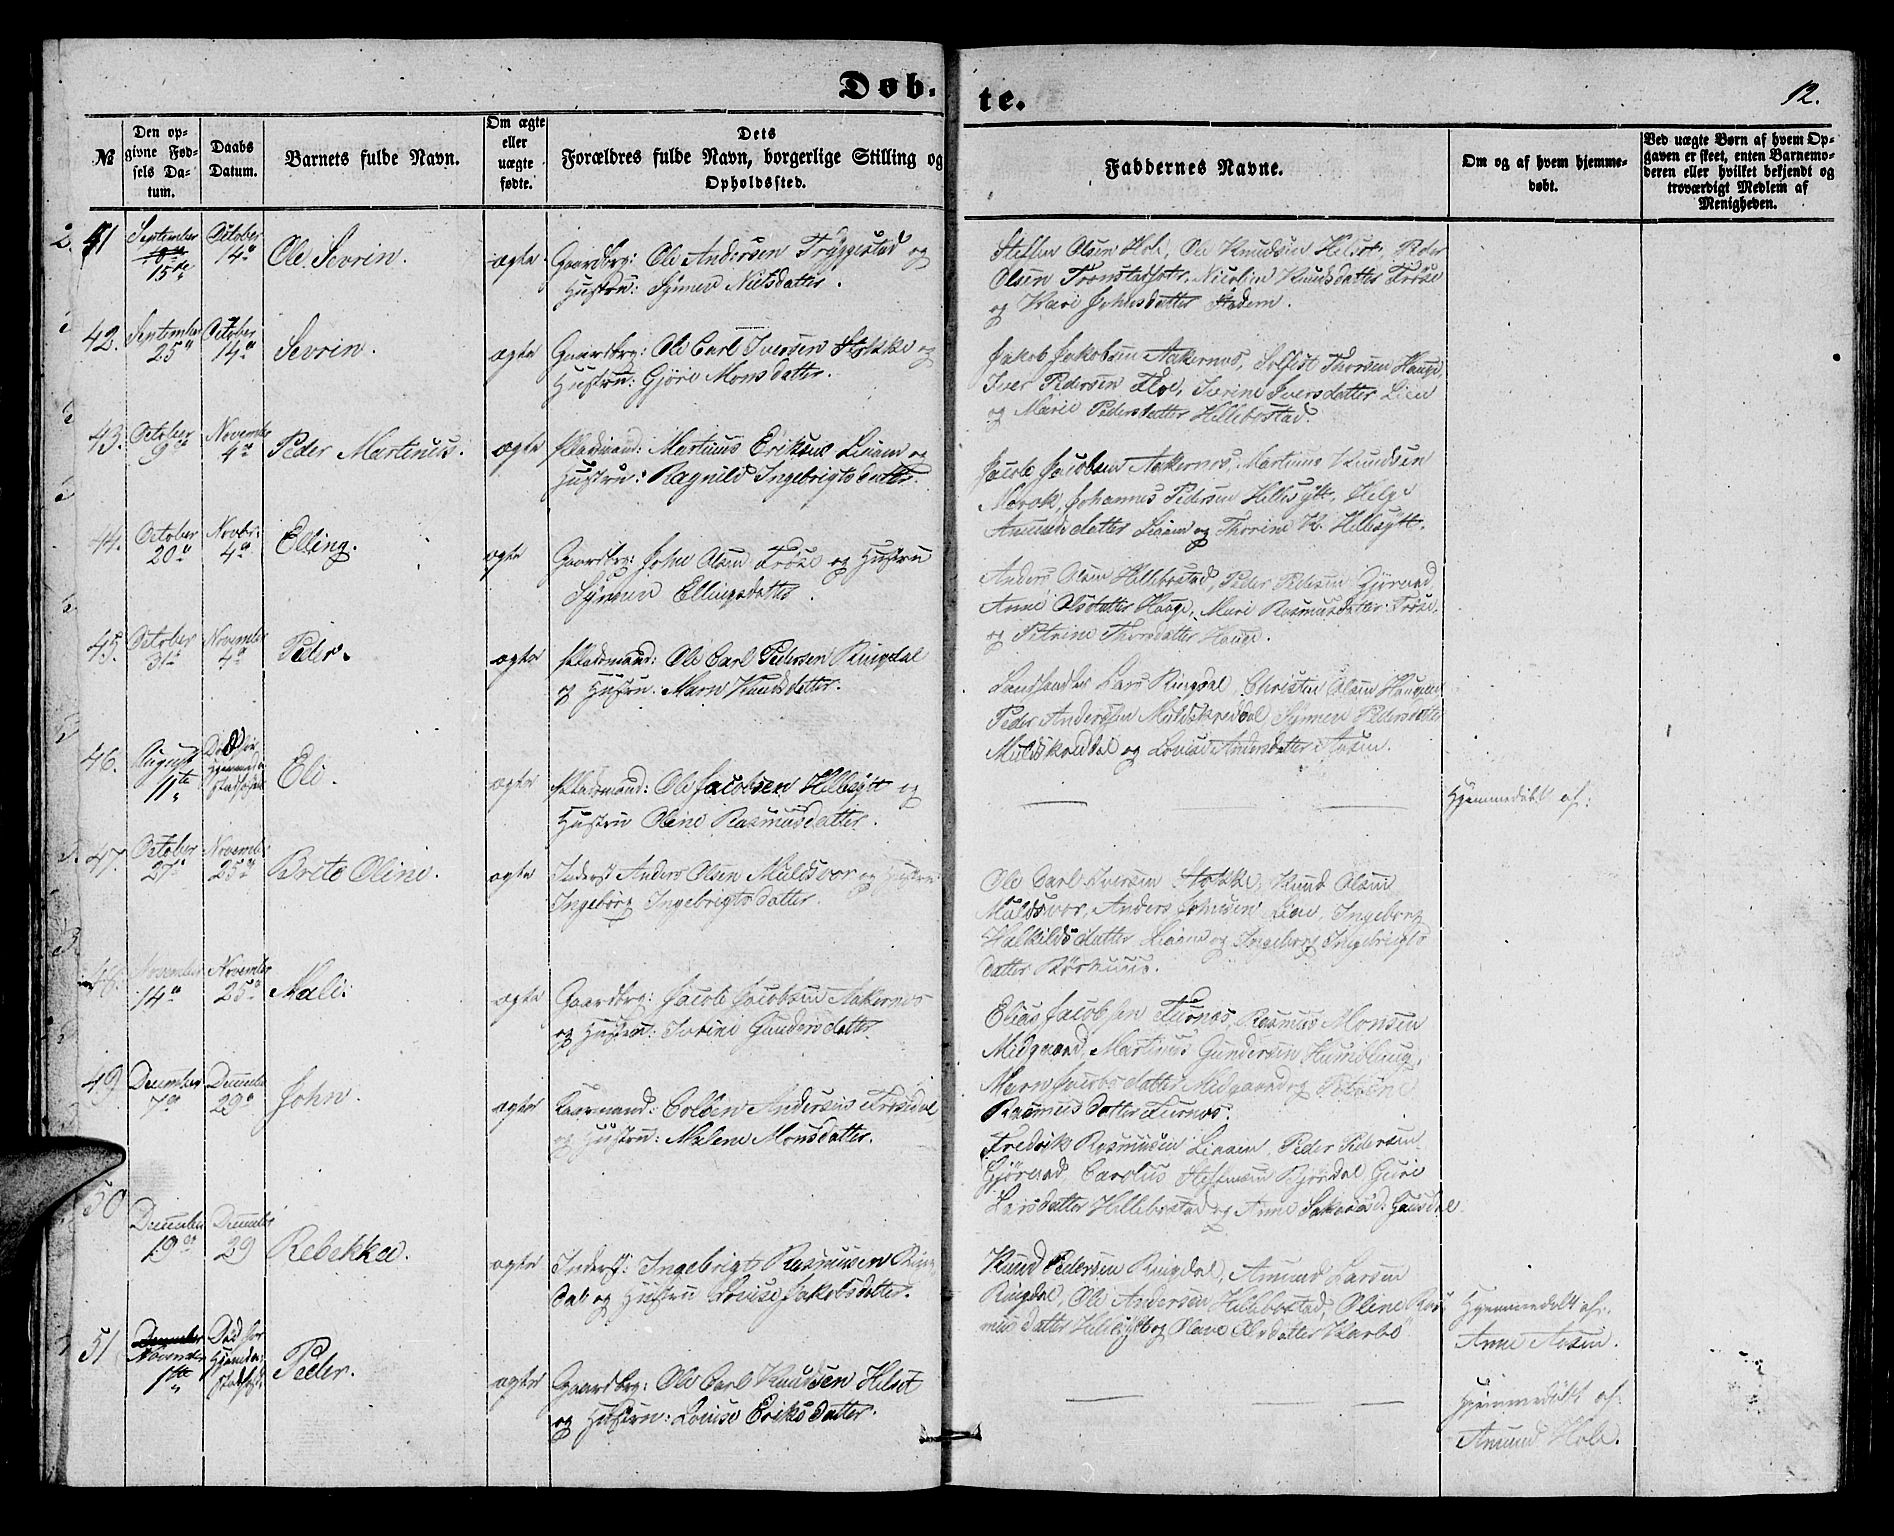 Døb-te.
12.
№
Den op-
givne Fød-
sels Da-
tum.
Daabs
Datum.
Barnets fulde Navn.
Om ægte
eller
uægte
fødte.
Dets
Forældres fulde Navn, borgerlige Stilling og
Opholdssted.
Faddernes Navne.
Om og af hvem hjemme-
døbt.
Ved uægte Børn af hvem Op-
gaven er skeet, enten Barnemo-
deren eller hvilket bekjendt og
troværdigt Medlem af
Menigheden.
41
September
15de
October
14de
Ole Sevrin.
ægte
Gaardbrg: Ole Andersen Tryggestad og
Hustru: Synnev Nilsdatter.
Steffen Olsen Hole, Ole Knudsen Hilset, Peder
Olsen Tronstad, Nicoline Knudsdatter Frøse
og Kari Johnsdatter
42.
September
25
October
14
Sevrin.
ægte
Gaardbrg: Ole Carl Iversen Stokke og
Hustru: Gjøre Monsdatter.
Jakob Jakobsen Aakernes, Solfest Thorsen Hauge
Iver Pedersen Floe, Serine Iversdatter Lien
og Marie Pedersdatter Hillebostad.
43.
October
9
November
4
Peder Martinus.
ægte
Pladsmand: Martinus Eriksen Liaen og
Hustru: Ragnild Ingebrigtsdatter.
Jacob Jacobsen Aakernes, Martinus Knudsen
Merok, Johannes Pedersen Hillesylt, Helge
Amundsdatter Liaen og Thorine K. Hillesylt.
44.
October
20
Novbr:
4
Elling.
ægte
Gaardbrg: John Olsen Frøse og Hustru
Synnev Ellingsdatter.
Anders Olsen Hillebostad, Peder Pedersen Gjeraad
Anne Olsdatter Hauge, Mari Rasmusdatter Frøse,
og Petrine Thorsdatter Hauge.
45.
October
31
November
4
Peder.
ægte
Pladsmand: Ole Carl Pedersen Ringdal
og Hustru: Maren Knudsdatter.
Landhandler Lars Ringdal, Christen Olsen Haugen
Peder Andersen Muldskreddal Synnev Pedersdatter
Muldskreddal og Lovise Andersdatter Aasen.
46.
August
11te
Død før
Hjemmed.
Stadfæst.
Eli.
ægte
Pladsmand: Ole Jacobsen Hillesylt og
Hustru Oline Rasmusdatter.
Hjemmedøbt af:
47.
October
27
November
25
Brite Oline.
ægte
Inderst Anders Olsen Muldsvor og Hustru
Ingeborg Ingebrigtsdatter.
Ole Carl Iversen Stokke, Knud Olsen
Muldsvor, Anders Johnsen Lien, Ingeborg
Halkildsdatter Liaen og Ingeborg Ingebrigts
datter Rørhuus.
48.
November
14
November
25
Mali.
ægte
Gaardbrg: Jacob Jacobsen Aakernes
og Hustru: Serine Gundersdatter.
Elias Jacobsen Furnes, Rasmus Monsen
Midgaard, Martinus Gundersen Humlung,
Maren Jacobsdatter Midgaard og
Rasmusdatter Furnes.
49
December
7
December
29
John.
ægte
Kaarmand: Colben Andersen Frøisdal
og Hustru: Malene Monsdatter.
Fredrik Rasmusen Liaaen, Peder Pedersen
Gjøraad, Carolus Bjørdal Guri
Larsdatter Hillebostad og Anne
50
December
19
December
29
Rebekka.
ægte
Inderst: Ingebrigt Rasmussen Ring-
dal og Hustru Lovise Jakobsdatter.
Knud Pedersen Ringdal, Amund Larsen
Ringdal, Ole Andersen Hillebostad, Oline Ras-
musdatter Hillesylt og Olave Olsdatter Karbø
Hjemmedøbt af:
Anne Aasen.
51
November
1te
Død før
Hjemdaa.
Stadfæst.
Peder.
ægte
Gaardbrg: Ole Carl Knudsen Hilset
og Hustru: Lovise Eriksdatter.
Hjemmedøbt af:
Amund Hole.